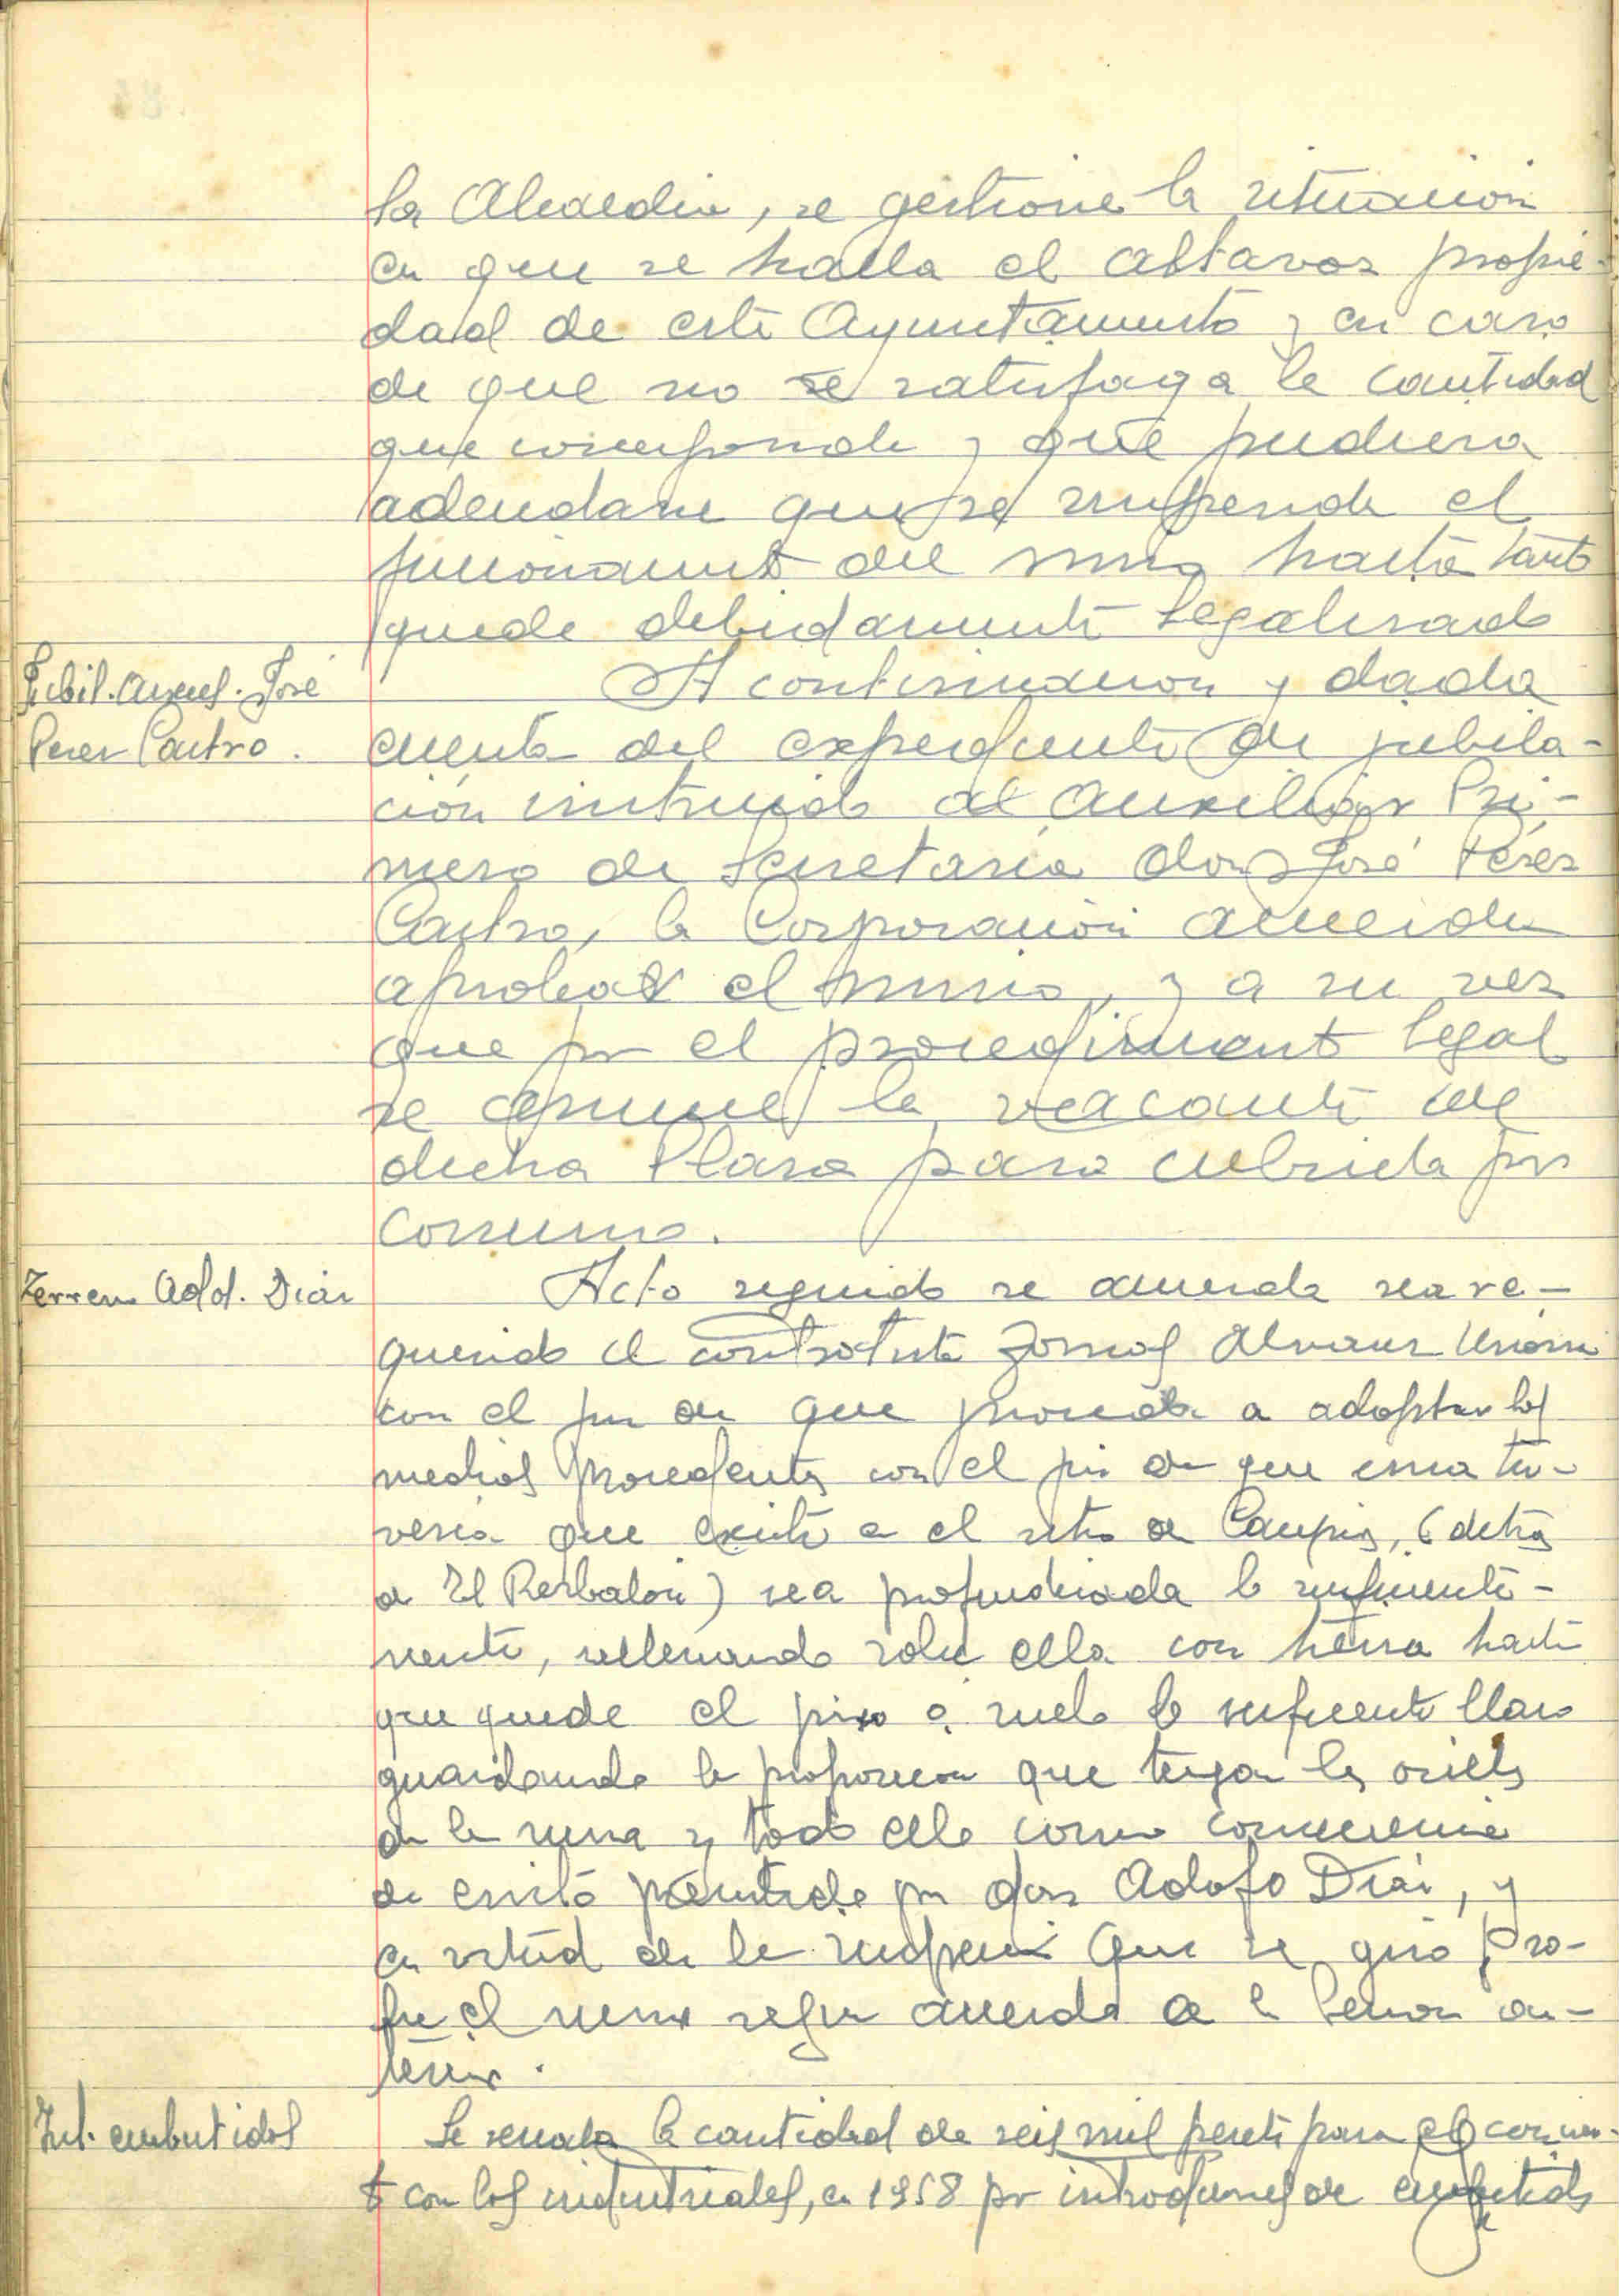 la Alcaldia, se gestione la situacion
en que se halla el altavoz propie-
dad de este Ayuntamiento y en caso
de que no se satisfaga la cantidad
que corresponde y que pudiera
adeudarse que se suspenda el
funcionamiento del mismo hasta tanto
quede debidamente legalizado
Jubil. auxul. José
Perez Castro.
A continuacion y dada
cuenta del expediente de jubila-
ción instruido al Auxiliar Pri-
mero de Secretaria don José Pérez
Castro, la Corporación acuerda
aprobar el mismo, y a su vez
que por el procedimiento legal
se anuncie la vacante de
dicha Plaza para cubrirla por
concurso.
Terreno Adol. Diaz
Acto seguido se acuerda sea re-
querido el contratista Alvarez
con el fin de que proceda a adoptar los
medios procedentes con el fin de que esa tu-
veria que existe en el sitio de Campio, (detrás
de El Resbalon) sea profundizada lo suficiente-
mente, rellenando sobre ella con tierra hasta
que quede el piso o suelo lo suficiente llano
guardando la proporcion que tengan las orillas
de la misma y todo ello como consecuencia
de escrito presentado por don Adolfo Diaz, y
en virtud de la inspeccion que se giro
el mismo segun acuerdo de la sesion an-
terior.
Ind. embutidos
Se señala la cantidad de seis mil pesetas para el concier-
to con los industriales, en 1958 por introducciones de embutidos